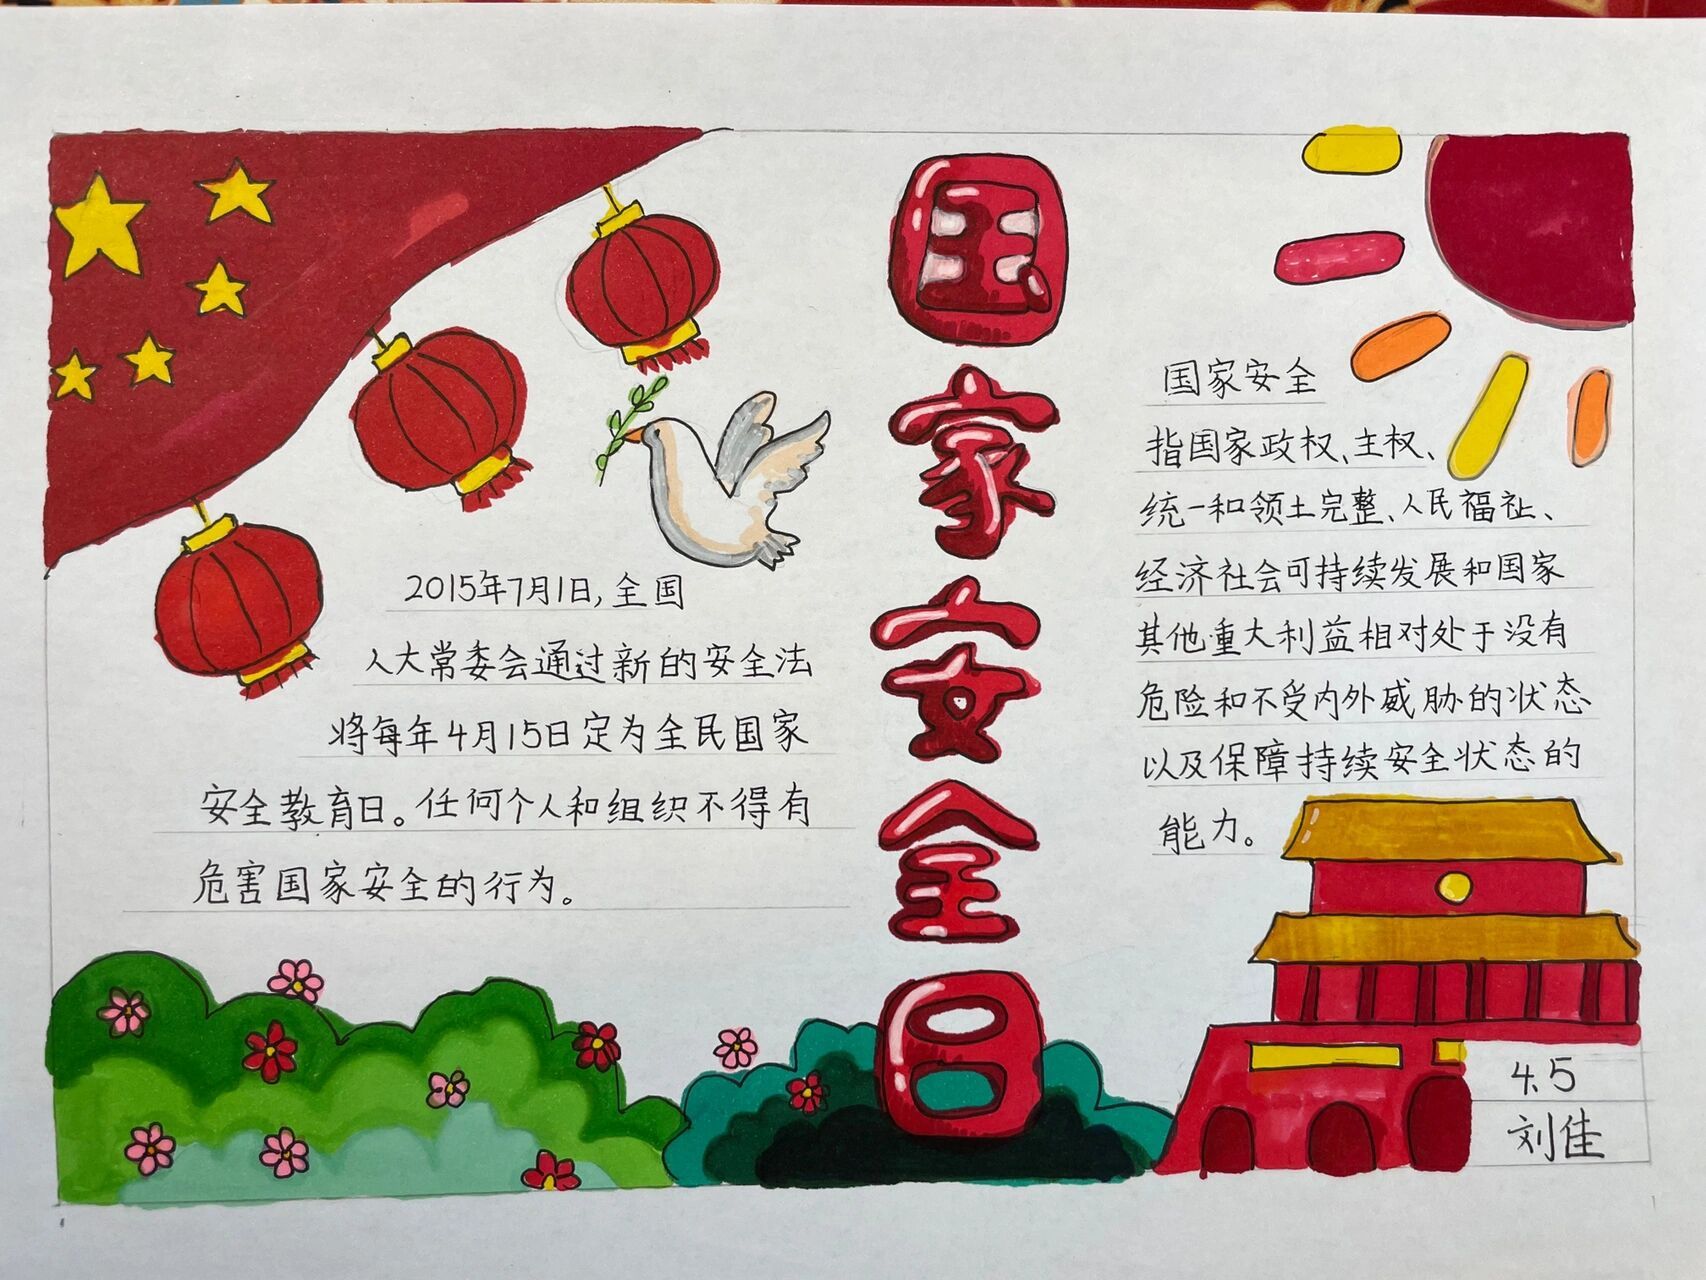 国家安全日
2015年7月1日,全国
人大常委会通过新的安全法
将每年4月15日定为全民国家
安全教育日。任何个人和组织不得有
危害国家安全的行为。
国家安全
指国家政权、主权、
统一和领土完整、人民福祉、
经济社会可持续发展和国家
其他重大利益相对处于没有
危险和不受内外威胁的状态
以及保障持续安全状态的
能力。
4.5
刘佳